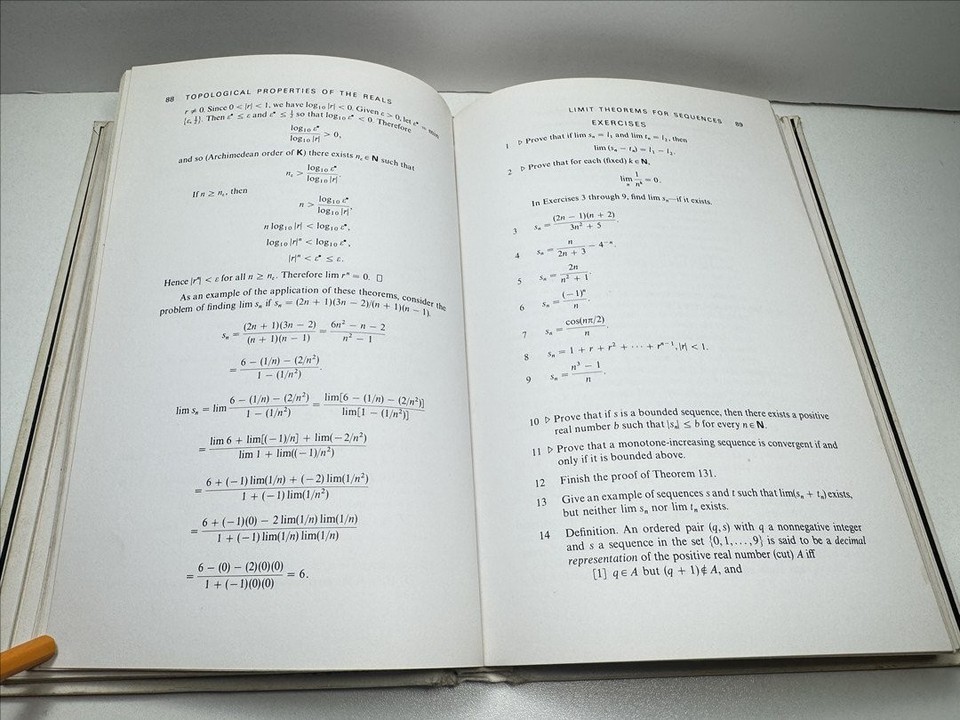 88 TOPOLOGICAL PROPERTIES OF THE REALS
r ≠ 0. Since 0 < |r| < 1, we have log₁₀ |r| < 0. Given ε > 0, let ε* = min
{ε, ½}. Then ε* ≤ ε and ε* ≤ ½ so that log₁₀ ε* < 0. Therefore
log₁₀ ε* / log₁₀ |r| > 0,
and so (Archimedean order of K) there exists nε ∈ N such that
nε > log₁₀ ε* / log₁₀ |r|.
If n ≥ nε, then
n > log₁₀ ε* / log₁₀ |r|,
n log₁₀ |r| < log₁₀ ε*,
log₁₀ |r|ⁿ < log₁₀ ε*,
|r|ⁿ < ε* ≤ ε.
Hence |rⁿ| < ε for all n ≥ nε. Therefore lim rⁿ = 0. □
As an example of the application of these theorems, consider the
problem of finding lim sₙ if sₙ = (2n + 1)(3n − 2)/(n + 1)(n − 1).
sₙ = (2n + 1)(3n − 2) / (n + 1)(n − 1) = 6n² − n − 2 / n² − 1
= 6 − (1/n) − (2/n²) / 1 − (1/n²).
lim sₙ = lim 6 − (1/n) − (2/n²) / 1 − (1/n²) = lim[6 − (1/n) − (2/n²)] / lim[1 − (1/n²)]
= lim 6 + lim[(−1)/n] + lim(−2/n²) / lim 1 + lim((−1)/n²)
= 6 + (−1) lim(1/n) + (−2) lim(1/n²) / 1 + (−1) lim(1/n²)
= 6 + (−1)(0) − 2 lim(1/n) lim(1/n) / 1 + (−1) lim(1/n) lim(1/n)
= 6 − (0) − (2)(0)(0) / 1 + (−1)(0)(0) = 6.
LIMIT THEOREMS FOR SEQUENCES 89
EXERCISES
1 ▷ Prove that if lim sₙ = l₁ and lim tₙ = l₂, then
lim (sₙ − tₙ) = l₁ − l₂.
2 ▷ Prove that for each (fixed) k ∈ N,
limₙ 1/nᵏ = 0.
In Exercises 3 through 9, find lim sₙ—if it exists.
3 sₙ = (2n − 1)(n + 2) / 3n² + 5.
4 sₙ = n / 2n + 3 − 4⁻ⁿ.
5 sₙ = 2n / n² + 1.
6 sₙ = (−1)ⁿ / n.
7 sₙ = cos(nπ/2) / n.
8 sₙ = 1 + r + r² + ⋯ + rⁿ⁻¹, |r| < 1.
9 sₙ = n³ − 1 / n.
10 ▷ Prove that if s is a bounded sequence, then there exists a positive
real number b such that |sₙ| ≤ b for every n ∈ N.
11 ▷ Prove that a monotone-increasing sequence is convergent if and
only if it is bounded above.
12 Finish the proof of Theorem 131.
13 Give an example of sequences s and t such that lim(sₙ + tₙ) exists,
but neither lim sₙ nor lim tₙ exists.
14 Definition. An ordered pair (q, s) with q a nonnegative integer
and s a sequence in the set {0, 1, . . . , 9} is said to be a decimal
representation of the positive real number (cut) A iff
[1] q ∈ A but (q + 1) ∉ A, and